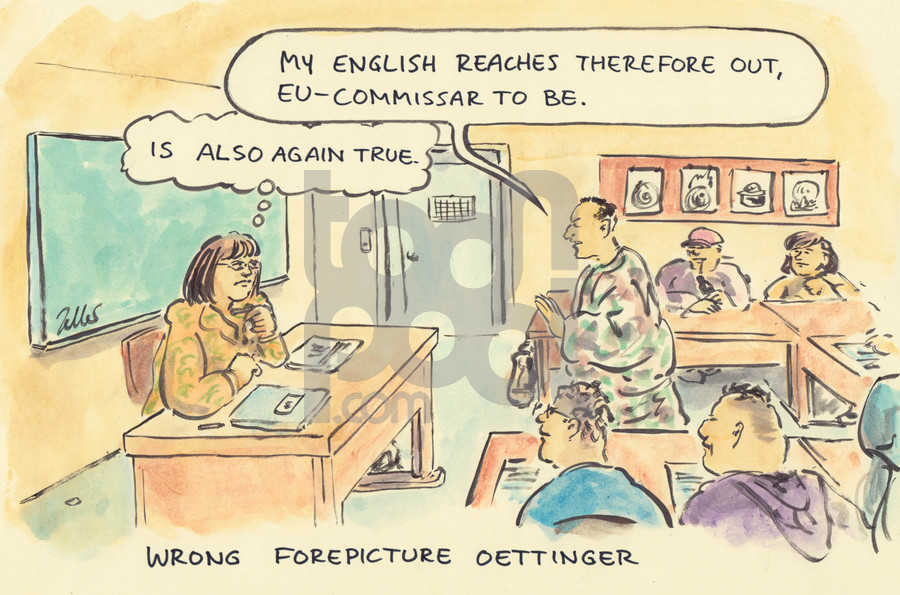 MY ENGLISH REACHES THEREFORE OUT,
EU-COMMISSAR TO BE.
IS ALSO AGAIN TRUE.
toonpool.com
WRONG FOREPICTURE OETTINGER